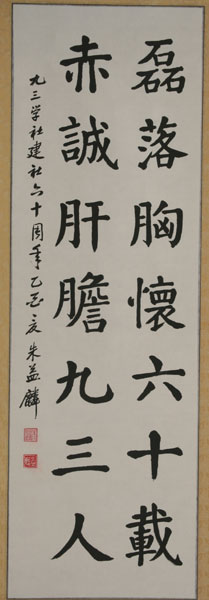 磊落胸懷六十載
赤誠肝膽九三人
九三学社建社六十周年乙酉夏朱益麟